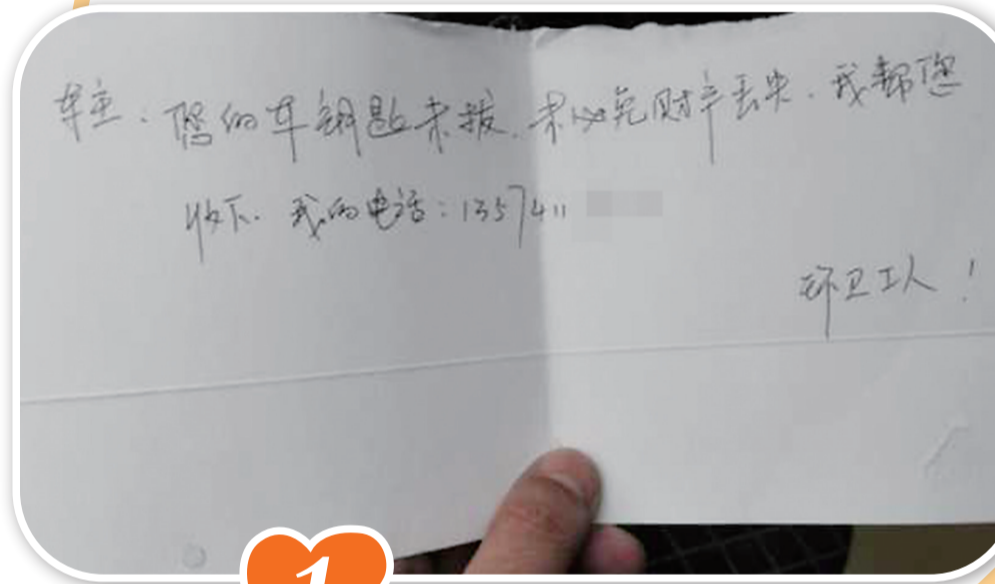 车主：您的车钥匙未拔，未必免财产丢失．我帮您
收下．我的电话：1357411
环卫工人！
1